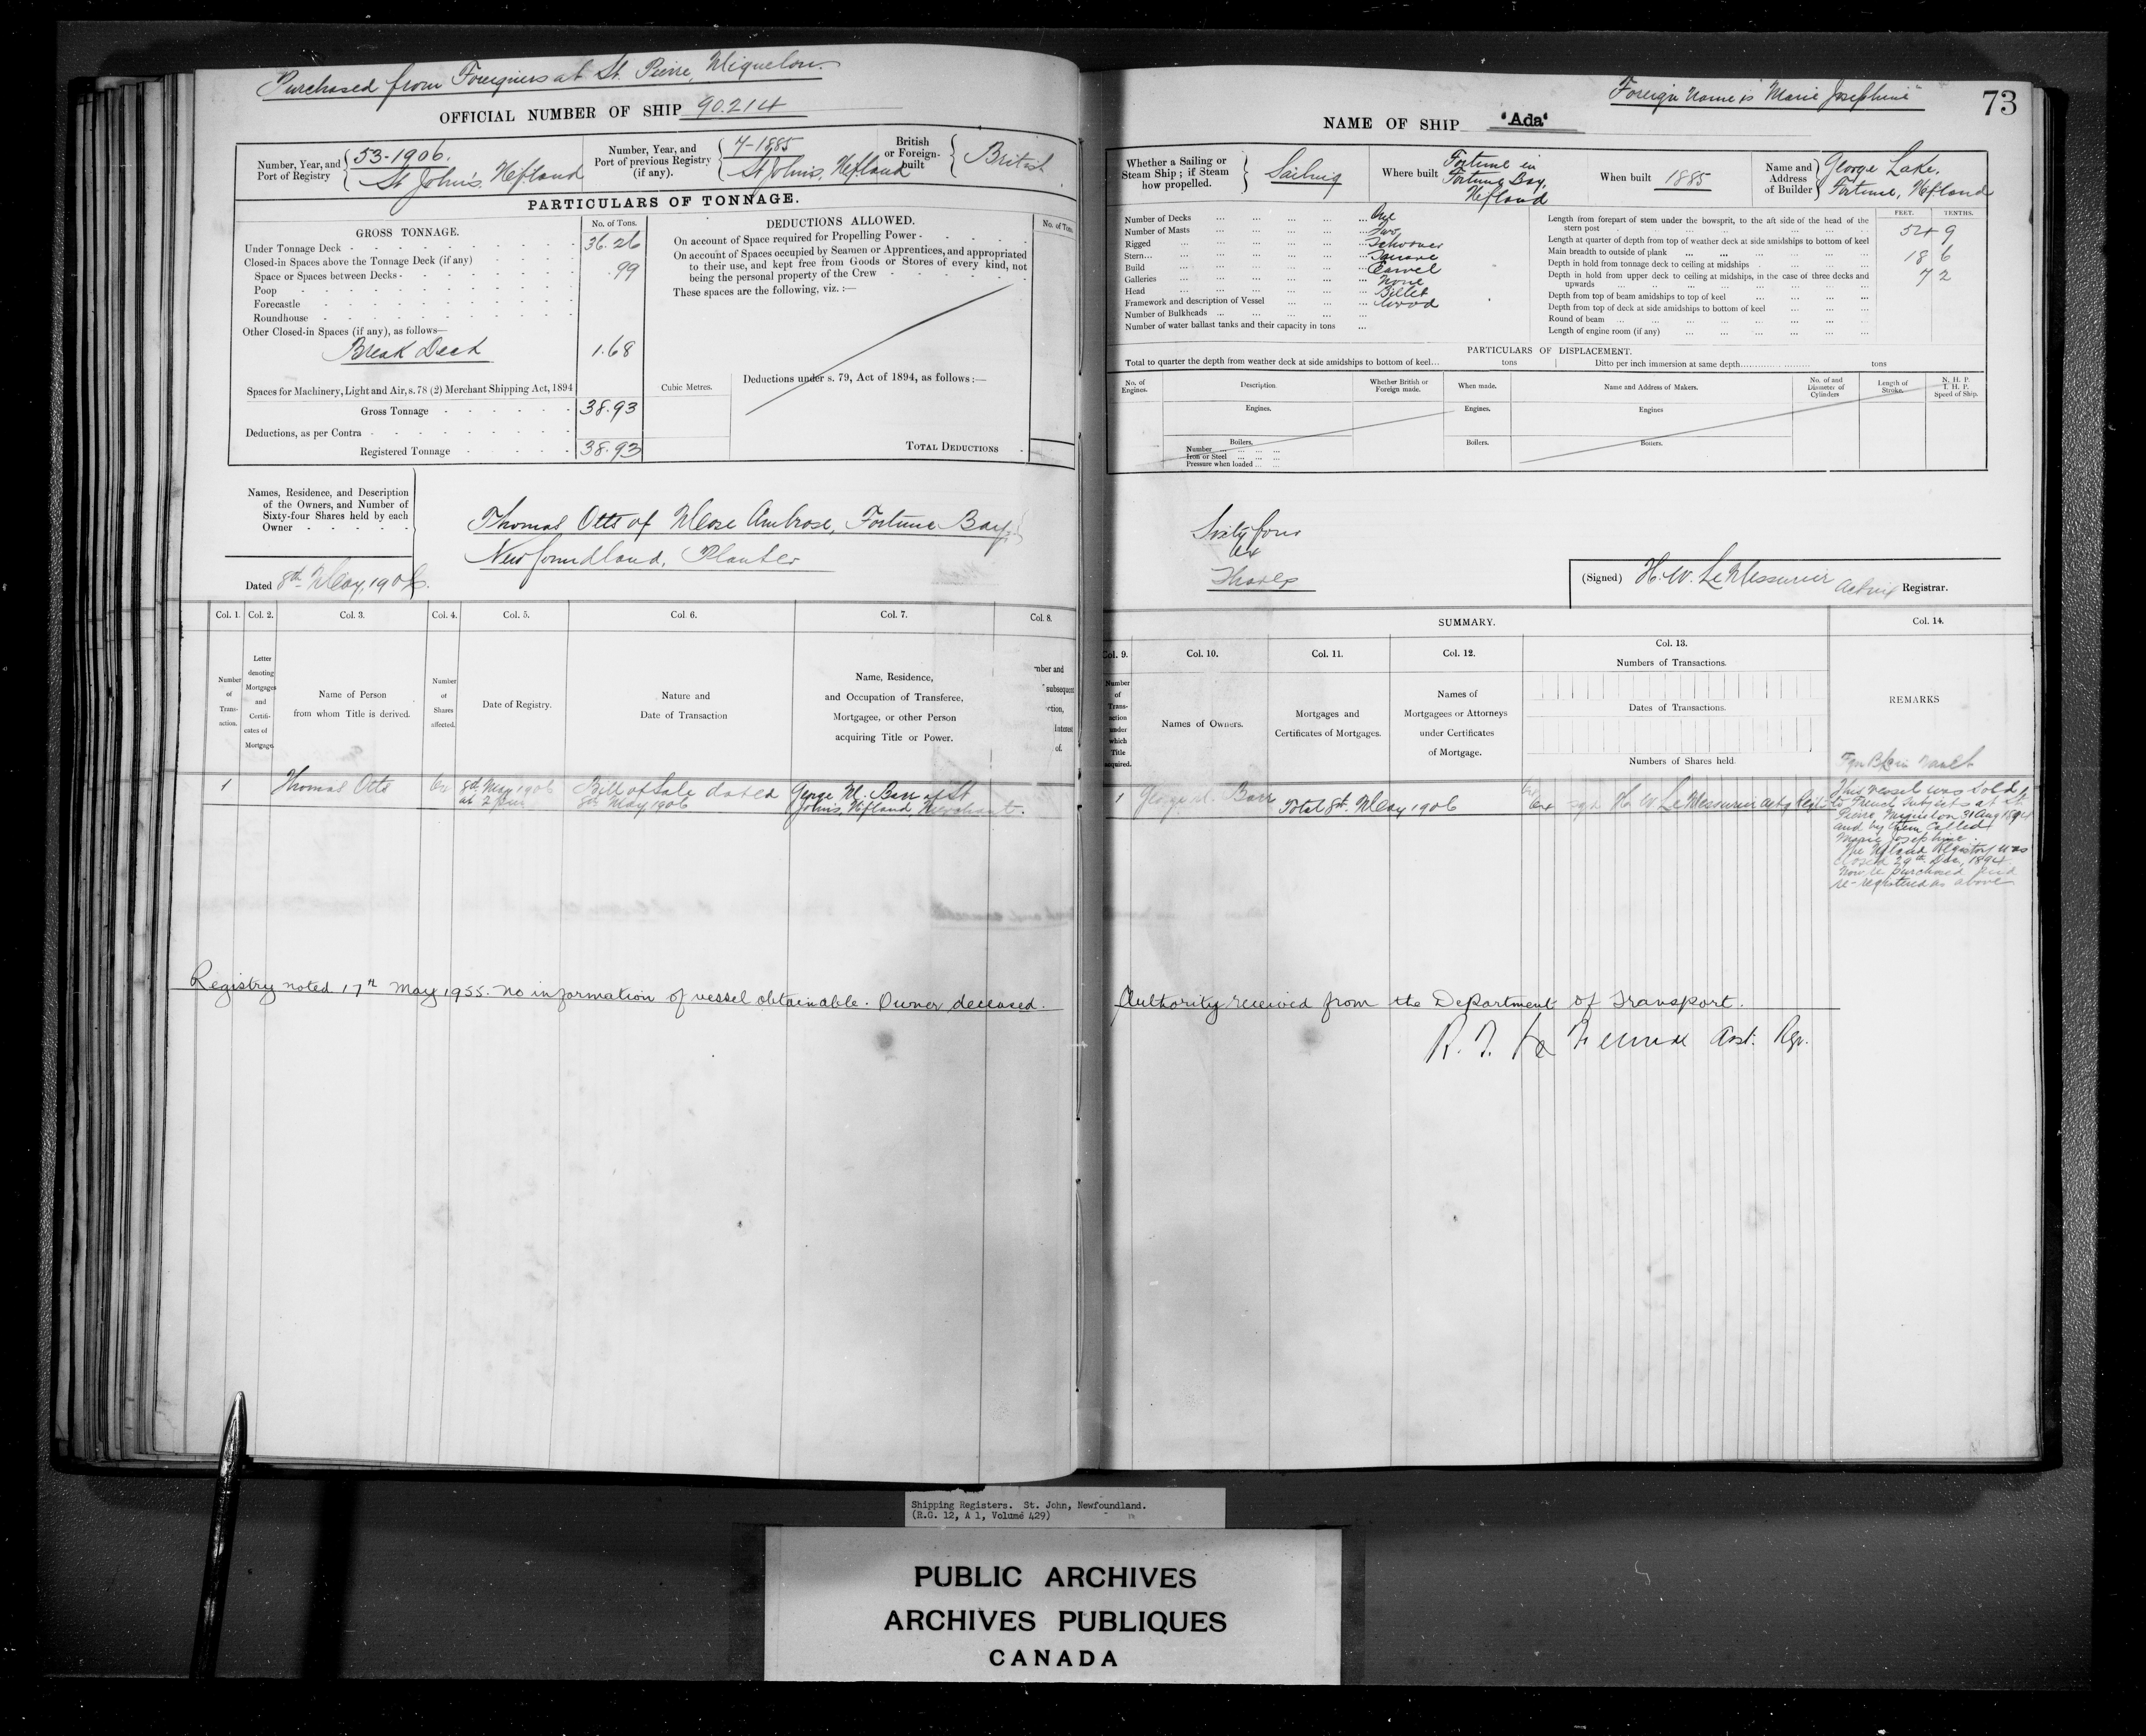 Purchased from Foreigners at St. Pierre, Miquelon.
OFFICIAL NUMBER OF SHIP 90.214
Number, Year, and Port of Registry 53-1906. St John's, Nfland
Number, Year, and Port of previous Registry (if any). 7-1885 St John's, Nfland
British or Foreign-built British
PARTICULARS OF TONNAGE.
GROSS TONNAGE. No. of Tons.
Under Tonnage Deck 36.26
Closed-in Spaces above the Tonnage Deck (if any)
Space or Spaces between Decks .99
Poop
Forecastle
Roundhouse
Other Closed-in Spaces (if any), as follows—
Break Deck 1.68
Spaces for Machinery, Light and Air, s. 78 (2) Merchant Shipping Act, 1894
Gross Tonnage 38.93
Deductions, as per Contra
Registered Tonnage 38.93
Cubic Metres.
DEDUCTIONS ALLOWED. No. of Tons
On account of Space required for Propelling Power
On account of Spaces occupied by Seamen or Apprentices, and appropriated
to their use, and kept free from Goods or Stores of every kind, not
being the personal property of the Crew
These spaces are the following, viz. :—
Deductions under s. 79, Act of 1894, as follows :—
TOTAL DEDUCTIONS
Names, Residence, and Description
of the Owners, and Number of
Sixty-four Shares held by each
Owner
Thomas Otts of Rose Ambrose, Fortune Bay,
Newfoundland, Planter
Dated 8th May, 1906.
Col. 1. Col. 2. Col. 3. Col. 4. Col. 5. Col. 6. Col. 7. Col. 8.
Number of Trans-action.
Letter denoting Mortgages and Certifi-cates of Mortgage.
Name of Person from whom Title is derived.
Number of Shares affected.
Date of Registry.
Nature and Date of Transaction
Name, Residence, and Occupation of Transferee, Mortgagee, or other Person acquiring Title or Power.
1 Thomas Otts 64 8th May 1906 Bill of Sale dated 8th May 1906 George M. Barr of St Johns, Nfland, Merchant.
Registry noted 17th May 1955. No information of vessel obtainable. Owner deceased.
Foreign Name is "Marie Josephine"
73
NAME OF SHIP "Ada"
Whether a Sailing or Steam Ship; if Steam how propelled. Sailing
Where built Fortune in Fortune Bay, Nfland
When built 1885
Name and Address of Builder George Lake, Fortune, Nfland
Number of Decks One
Number of Masts Two
Rigged Schooner
Stern Square
Build Carvel
Galleries None
Head Billet
Framework and description of Vessel Wood
Number of Bulkheads
Number of water ballast tanks and their capacity in tons
FEET. TENTHS.
Length from forepart of stem under the bowsprit, to the aft side of the head of the
stern post 54 9
Length at quarter of depth from top of weather deck at side amidships to bottom of keel
Main breadth to outside of plank 18 6
Depth in hold from tonnage deck to ceiling at midships 7 2
Depth in hold from upper deck to ceiling at midships, in the case of three decks and
upwards
Depth from top of beam amidships to top of keel
Depth from top of deck at side amidships to bottom of keel
Round of beam
Length of engine room (if any)
PARTICULARS OF DISPLACEMENT.
Total to quarter the depth from weather deck at side amidships to bottom of keel tons Ditto per inch immersion at same depth tons
No. of Engines. Description. Whether British or Foreign made. When made. Name and Address of Makers. No. of and Diameter of Cylinders Length of Stroke. N. H. P. I. H. P. Speed of Ship.
Engines. Engines. Engines
Boilers. Boilers. Boilers.
Number
Iron or Steel
Pressure when loaded
Sixty four
64
Shares
(Signed) H. W. LeMessurier Acting Registrar.
SUMMARY. Col. 14.
Col. 9. Col. 10. Col. 11. Col. 12. Col. 13.
Number of Trans-action under which Title acquired.
Names of Owners.
Mortgages and Certificates of Mortgages.
Names of Mortgagees or Attorneys under Certificates of Mortgage.
Numbers of Transactions.
Dates of Transactions.
Numbers of Shares held.
REMARKS
1 George M. Barr Total 8th. May 1906 64 sgd H. W. LeMessurier actg Regr
This vessel was sold
to French Subjects at St
Pierre Miquelon 31 Aug 1894
and by them called
Marie Josephine.
The Nfland Registry was
closed 29th Dec, 1894.
Now re purchased and
re-registered as above
Authority received from the Department of Transport.
Asst. Rgr.
Shipping Registers. St. John, Newfoundland.
(R.G. 12, A 1, Volume 429)
PUBLIC ARCHIVES
ARCHIVES PUBLIQUES
CANADA